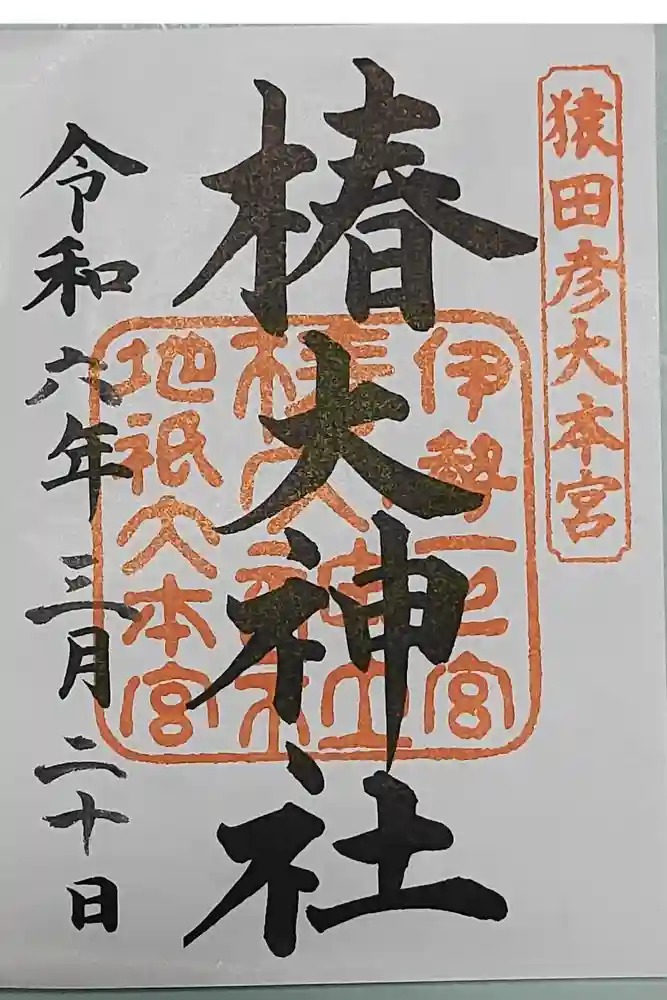 猿田彦大本宮
椿大神社
伊勢一之宮
椿大神社
地祇大本宮
令和六年三月二十日